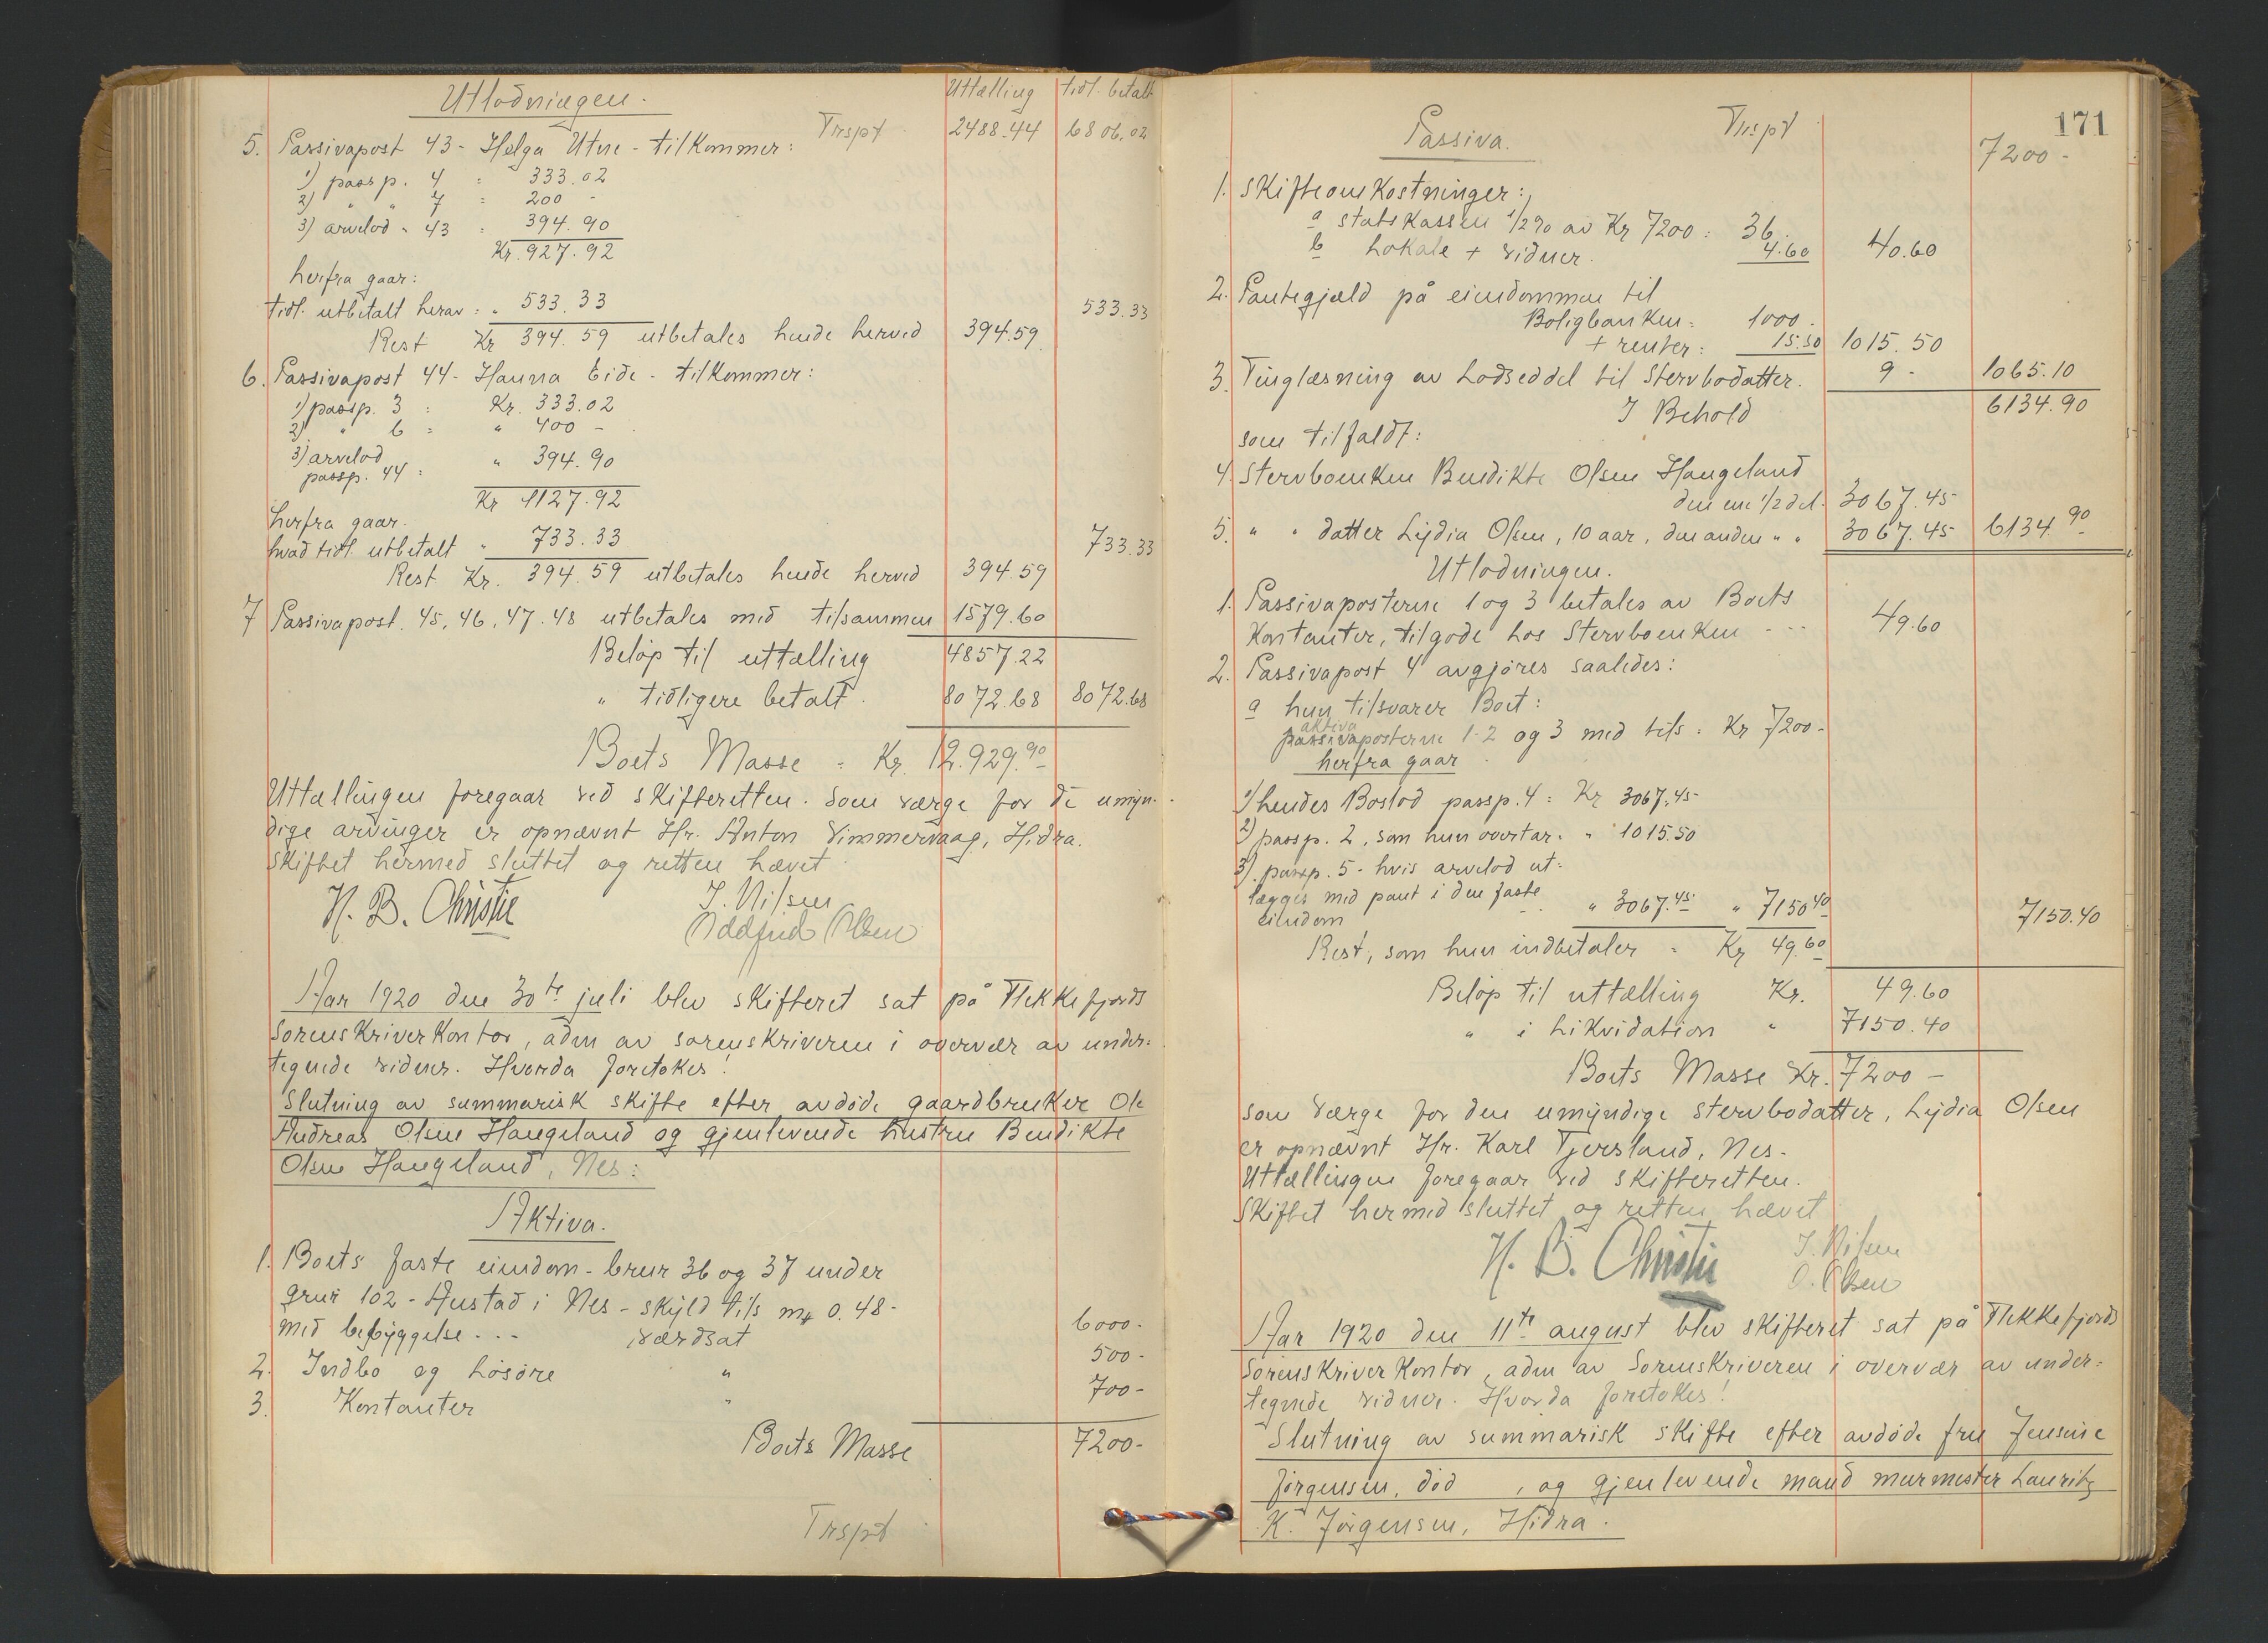 Utlodningen.
Uttælling tidl. betalt
Trspt 2488.44 6806.02
5. Passivapost 43 - Helga Utne - tilkommer:
1) passp. 4 = 333.02
2) " " 7 = 200 -
3) arvelod " 43 = 394.90
Kr. 927.92
herfra gaar:
tidl. utbetalt herav = " 533.33 533.33
Rest Kr 394.59 utbetales hende herved 394.59
6. Passivapost 44 - Hanna Eide - tilkommer:
1) passp. 3 : Kr. 333.02
2) " 6 = " 400 -
3) arvelod " 394.90
passp. 44 =
Kr 1127.92
herfra gaar.
hvad tidl. utbetalt " 733.33 733.33
Rest Kr. 394.59 utbetales hende herved 394.59
7 Passivapost. 45, 46, 47. 48 utbetales med tilsammen 1579.60
Beløp til uttælling 4857.22
" tidligere betalt. 8072.68 8072.68
Boets Masse = Kr. 12.929.90
Uttællingen foregaar ved skifteretten. Som værge for de umyn-
dige arvinger er opnævnt Hr. Anton Vimmervaag, Hidra.
Skiftet hermed sluttet og retten hævet
H. B. Christie J. Nilsen
Oddfrid Olsen
Aar 1920 den 30te juli blev skifteret sat på Flekkefjords
Sorenskriverkontor, adm av sorenskriveren i overvær av under=
tegnede vidner. Hvorda foretokes!
Slutning av summarisk skifte efter avdøde gaardbruker Ole
Andreas Olsen Haugeland og gjenlevende hustru Bendikte
Olsen Haugeland, Nes:
Aktiva.
1. Boets faste eiendom - brnr 36 og 37 under
grnr 102 - Austad i Nes - skyld tils mk 0.48 -
med bebyggelse - - - værdsat 6000 -
2. Indbo og løsøre " 500 -
3. Kontanter " 700 -
Boets Masse 7200 -
Trspt
171
Passiva. Trspt
7200 -
1. Skifteomkostninger:
a statskassen 1/2% av Kr 7200 = 36.
b Lokale + vidner. 4.60 40.60
2. Pantegjæld på eiendommen til
Boligbanken = 1000 -
+ renter = 15.50 1015.50
3. Tinglæsning av Lodseddel til Stervbodatter. 9 - 1065.10
I Behold 6134.90
som tilfaldt:
4. Stervboenken Bendikte Olsen Haugeland
den ene 1/2 del. 3067.45
5. " " datter Lydia Olsen, 10 aar, den anden " " 3067.45 6134.90
Utlodningen.
1. Passivaposterne 1 og 3 betales av Boets
Kontanter, tilgode hos Stervboenken - - - 49.60
2. Passivapost 4 avgjøres saaledes:
a hun tilsvarer Boet:
aktiva
passivaposterne 1-2 og 3 med tils = Kr 7200 -
herfra gaar
1) hendes Boslod passp. 4 = Kr 3067.45
2) passp. 2, som hun overtar = " 1015.50
3) passp. 5 - hvis arvelod ut=
lægges med pant i den faste
eiendom " 3067.45 " 7150.40 7150.40
Rest, som hun indbetaler = Kr 49.60
Beløp til uttælling Kr. 49.60
" i Likvidation " 7150.40
Boets Masse Kr. 7200 -
Som Værge for den umyndige stervbodatter, Lydia Olsen
er opnævnt Hr. Karl Tjersland, Nes.
Uttællingen foregaar ved skifteretten.
Skiftet hermed sluttet og retten hævet
H. B. Christie J. Nilsen
O. Olsen
Aar 1920 den 11te august blev skifteret sat på Flekkefjords
Sorenskriverkontor, adm av Sorenskriveren i overvær av under=
tegnede vidner. Hvorda foretokes!
Slutning av summarisk skifte efter avdøde fru Jensine
Jørgensen, død , og gjenlevende mand murmester Lauritz
K. Jørgensen, Hidra.